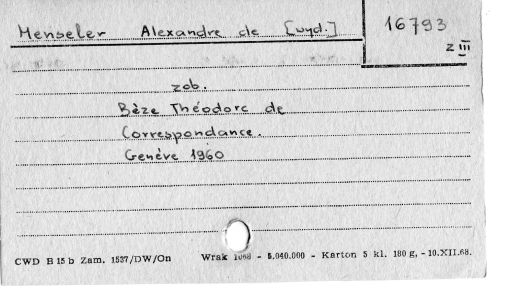 Menseler Alexandre de [wyd.]
16793
z III
zob.
Bèze Théodore de
Correspondance.
Genève 1960
CWD B 15 b Zam. 1537/DW/On Wrak 1068 - 5.040.000 - Karton 5 kl. 180 g, - 10.XII.68.